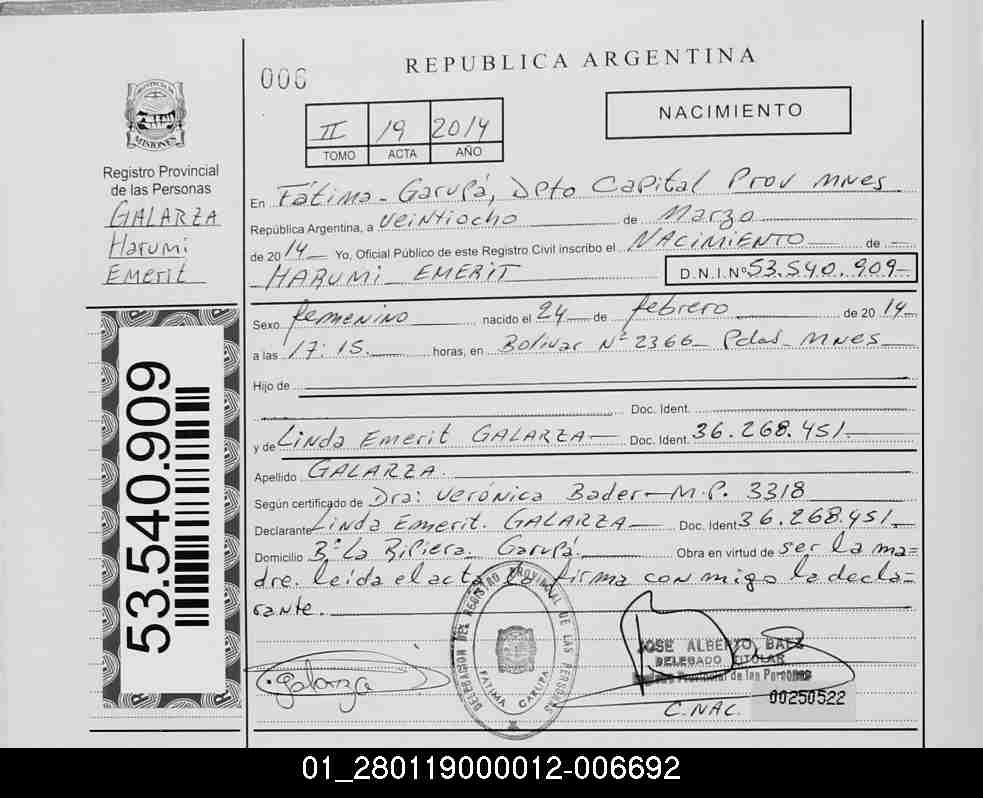 006
REPUBLICA ARGENTINA
PROVINCIA DE
MISIONES
II 19 2014
TOMO ACTA AÑO
NACIMIENTO
Registro Provincial
de las Personas
GALARZA
Harumi
Emerit
En Fátima - Garupá, Dpto Capital Prov Mnes
República Argentina, a veintiocho de Marzo
de 2014 Yo, Oficial Público de este Registro Civil inscribo el NACIMIENTO de
HARUMI EMERIT D.N.I.Nº 53.540.909
Sexo femenino nacido el 24 de febrero de 2014
a las 17:15 horas, en Bolivar Nº 2366 Pdas - Mnes
Hijo de
Doc. Ident.
y de Linda Emerit GALARZA Doc. Ident. 36.268.451
Apellido GALARZA
Según certificado de Dra: Verónica Bader - M.P. 3318
Declarante Linda Emerit GALARZA Doc. Ident. 36.268.451
Domicilio Bº La Ribera. Garupá. Obra en virtud de ser la ma=
dre. leída el acta la firma conmigo la decla=
rante.
53.540.909
DELEGACION DEL REGISTRO PROVINCIAL DE LAS PERSONAS
FATIMA GARUPA
Galarza
JOSE ALBERTO BAEZ
DELEGADO TITULAR
Registro Provincial de las Personas
00250522
C.NAC.
01_280119000012-006692